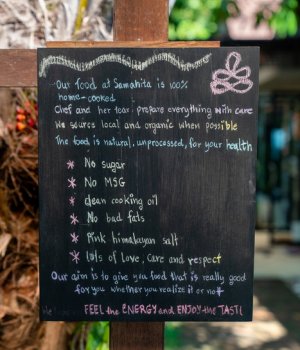 Our food at Samahita is 100%
home-cooked
Chef and her team prepare everything with care
We source local and organic when possible
The food is natural, unprocessed, for your health
* No sugar
* No MSG
* clean cooking oil
* No bad fats
* Pink himalayan salt
* lots of love, care and respect
Our aim is to give you food that is really good
for you whether you realize it or not
FEEL the ENERGY and ENJOY the TASTE